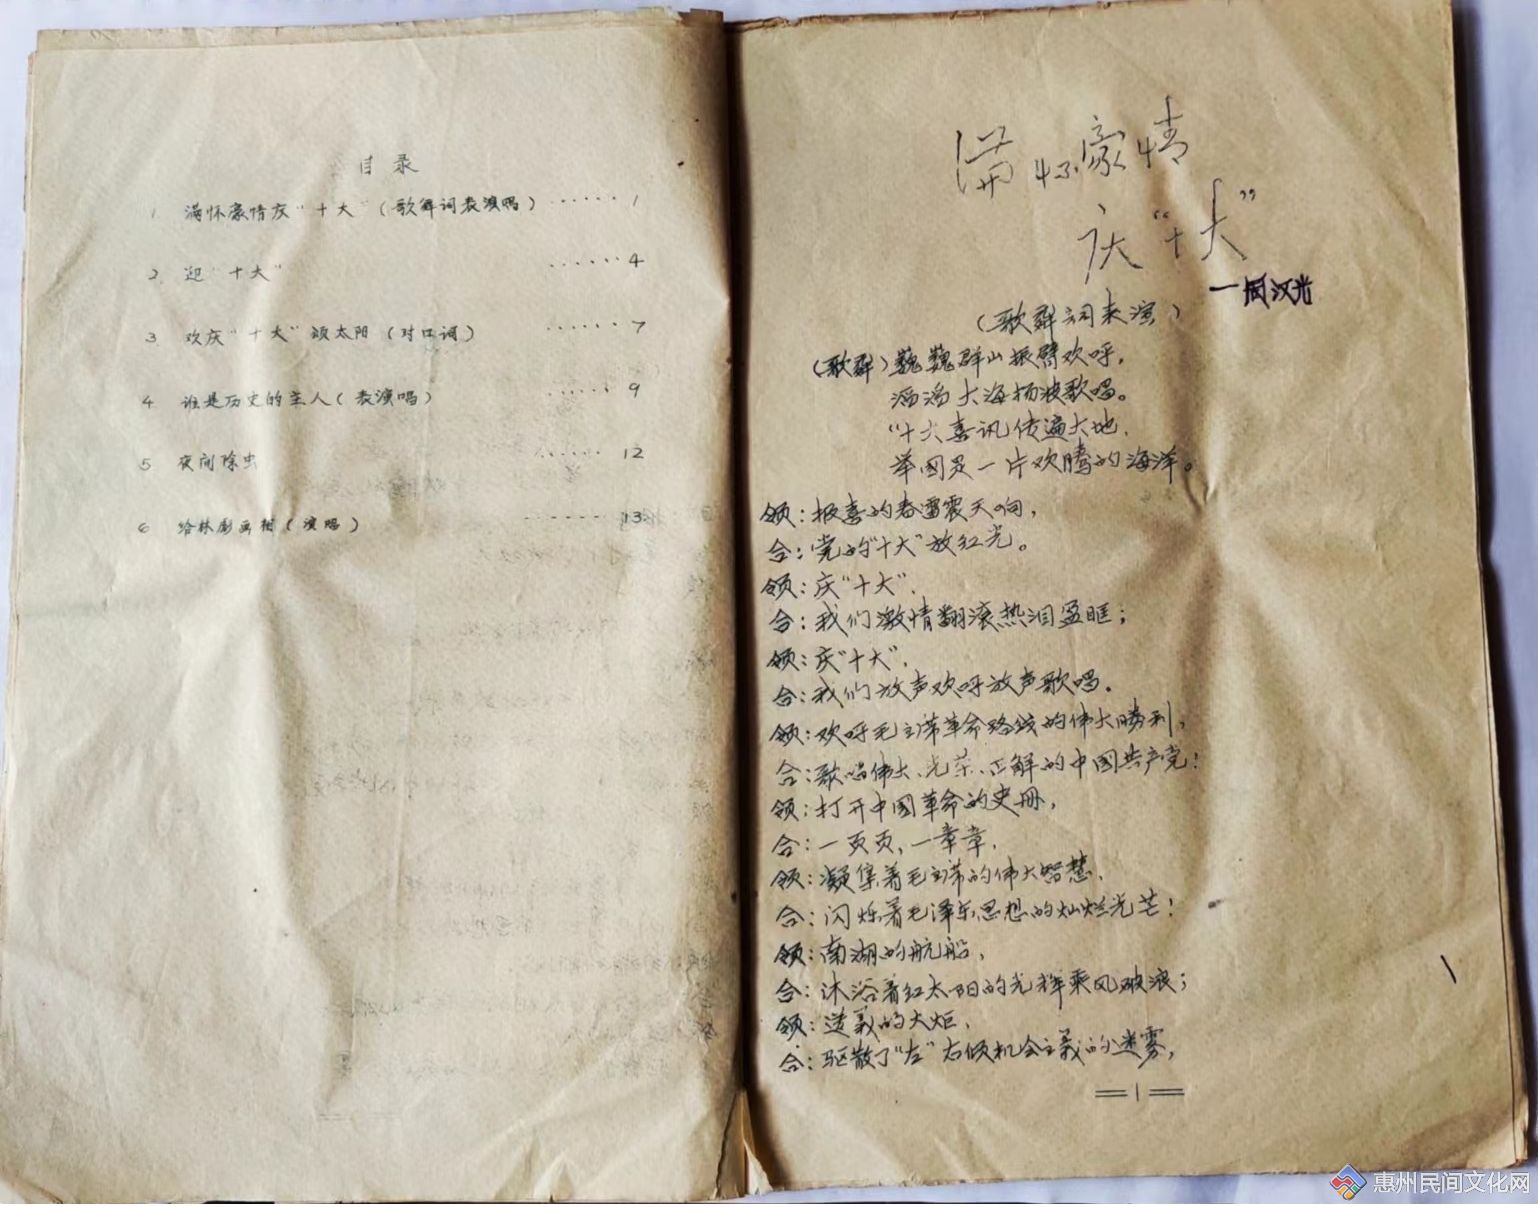 目录
1 满怀豪情庆“十大”（歌舞词表演唱）······1
2 迎“十大”······4
3 欢庆“十大”颂太阳（对口词）······7
4 谁是历史的主人（表演唱）······9
5 夜间除虫······12
6 给林彪画相（演唱）······13
满怀豪情
庆“十大”
一周汉光
（歌舞词表演）
（歌群）巍巍群山振臂欢呼，
滔滔大海扬波歌唱。
“十大喜讯传遍大地，
举国是一片欢腾的海洋。
领：报喜的春雷震天响，
合：党的“十大”放红光。
领：庆“十大”，
合：我们激情翻滚热泪盈眶；
领：庆“十大”，
合：我们放声欢呼放声歌唱。
领：欢呼毛主席革命路线的伟大胜利，
合：歌唱伟大、光荣、正解的中国共产党！
领：打开中国革命的史册，
合：一页页，一章章，
领：凝集着毛主席的伟大智慧，
合：闪烁着毛泽东思想的灿烂光芒！
领：南湖的航船，
合：沐浴着红太阳的光辉乘风破浪；
领：遵义的火炬，
合：驱散了“左”右倾机会主义的迷雾，
=1=
惠州民间文化网